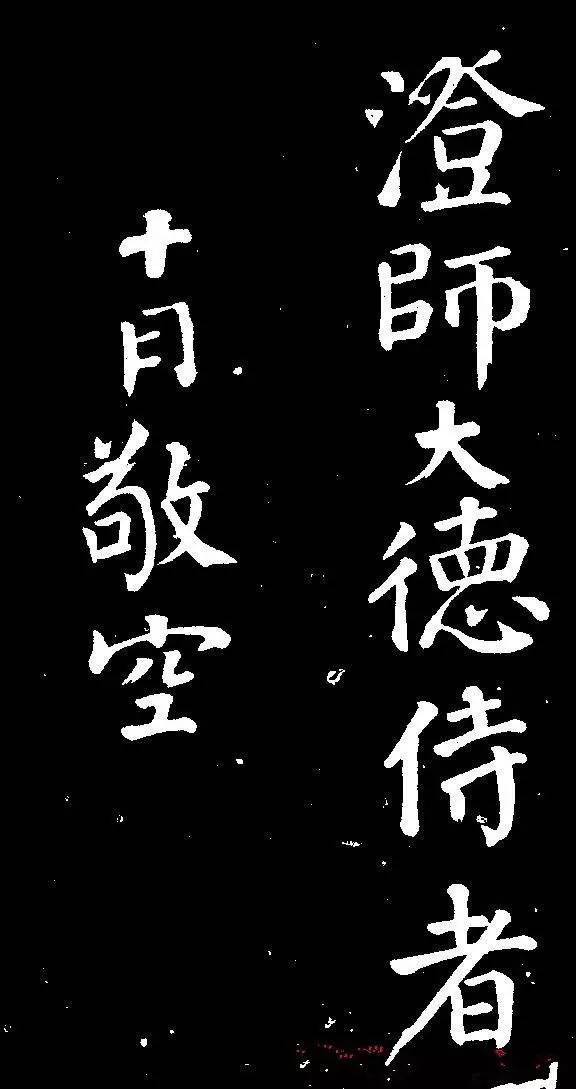 澄師大德侍者
十月敬空